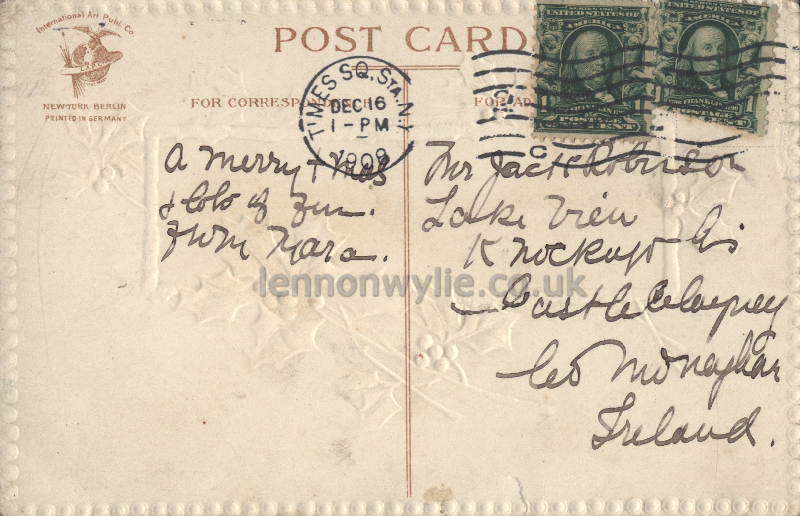 International Art Publ. Co
NEW YORK BERLIN
PRINTED IN GERMANY
POST CARD
FOR CORRESPO
FOR AD
TIMES SQ. STA. N.Y.
DEC 16
1-PM
1909
UNITED STATES OF
AMERICA
FRANKLIN
POSTAGE
CENT
UNITED STATES OF
AMERICA
FRANKLIN
POSTAGE
1
A Merry Xmas
& lots of Fun.
From Nara.
Mr Jack Robinson
Lake View
Castleblayney
Co Monaghan
Ireland.
lennonwylie.co.uk